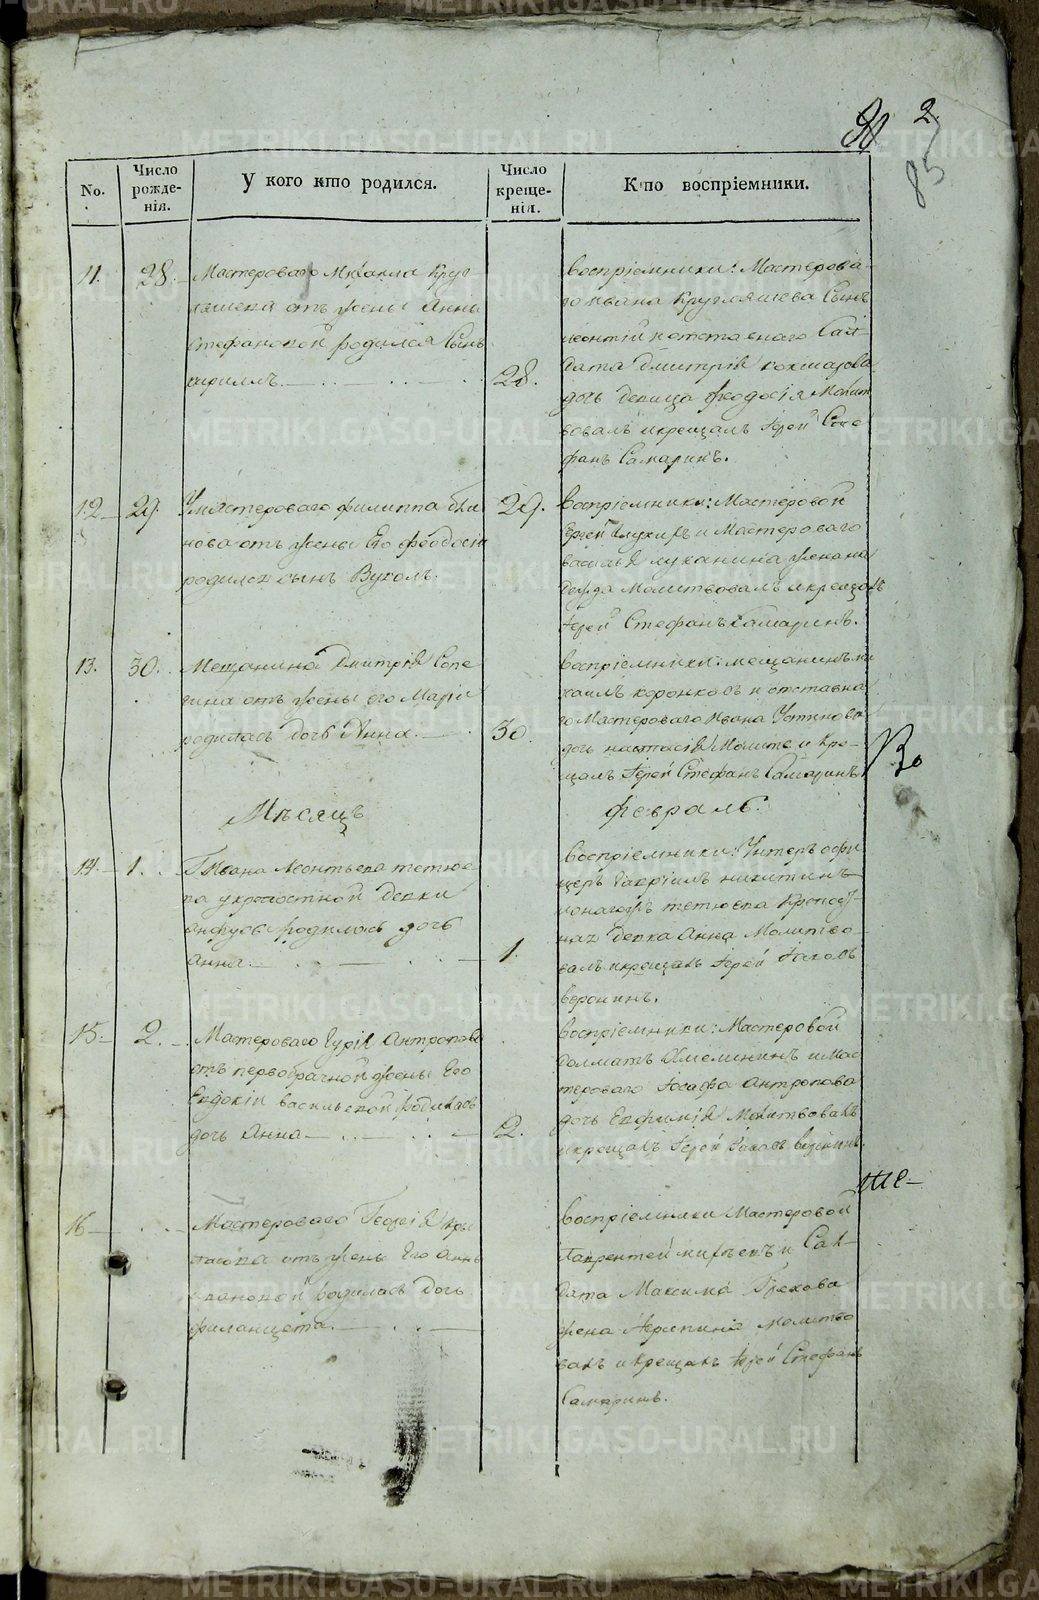 2
85
No.
Число рожде-нія.
У кого кто родился.
Число креще-нія.
Кто воспріемники.
11.
28.
Мастероваго Михаила Круг
ляшева отъ жены Анны
Стефановой родился Сынъ
кирилъ.
28.
воспріемники: Мастерова
го Ивана Кругляшева Сынъ
леонтій и отставнаго Сал
дата Дмитрія кокшарова
дочь девица феодосія Молит
вовалъ и крещалъ Іерей Сте
фанъ Самаринъ.
12
29.
У мастероваго филиппа бли
нова отъ жены Его феодосіи
родился сынъ Вуколъ.
29.
воспріемники: Мастеровой
Сергей и Мастероваго
василья луканина жена на
дежда Молитвовалъ и крещалъ
Іерей Стефанъ Самаринъ.
13.
30.
Мещанина Дмитрія Сопе
гина отъ жены его Маріи
родилась дочь Анна.
30.
воспріемники: мещанинъ ми
хаилъ коронковъ и отставна
го Мастероваго Ивана Устинова
дочь настасія Молитв. и Кре-
щалъ Іерей Стефанъ Самаринъ
Во
Мѣсяцъ
февраль.
14.
1.
Г. Ивана Леонтьева тетюе
ва у крепостной девки
родилась дочь
Анна.
1.
воспріемники: Унтеръ офи
церъ Гавріилъ никитинъ
тетюева Крепост
ная девка Анна Молитво
валъ и крещалъ Іерей Іаковъ
воронинъ.
15.
2.
Мастероваго Гурія Антропова
отъ первобрачной жены Его
Евдокіи васильевой родилась
дочь Анна
2.
воспріемники: Мастеровой
долматъ Хмелининъ и Мас
тероваго Іосафа антропова
дочь Евфимія Молитвовалъ
и крещалъ Іерей Іаковъ воронинъ.
16
Мастероваго Георгія Кры
ласова отъ жены Его Анны
Ивановой родилась дочь
филанцета.
воспріемники Мастеровой
Лаврентей и Сал
дата Максима Грехова
жена Агрепина Молитво
валъ и крещалъ Іерей Стефанъ
Самаринъ.
METRIKI.GASO-URAL.RU